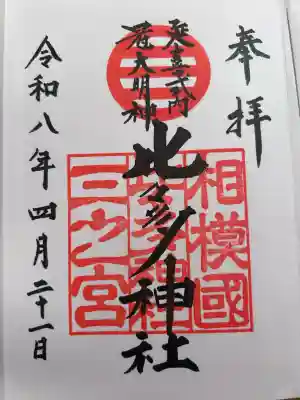 奉拝
延喜式内
冠大明神
比々多神社
相模國
比々多神社
三之宮
令和八年四月二十一日